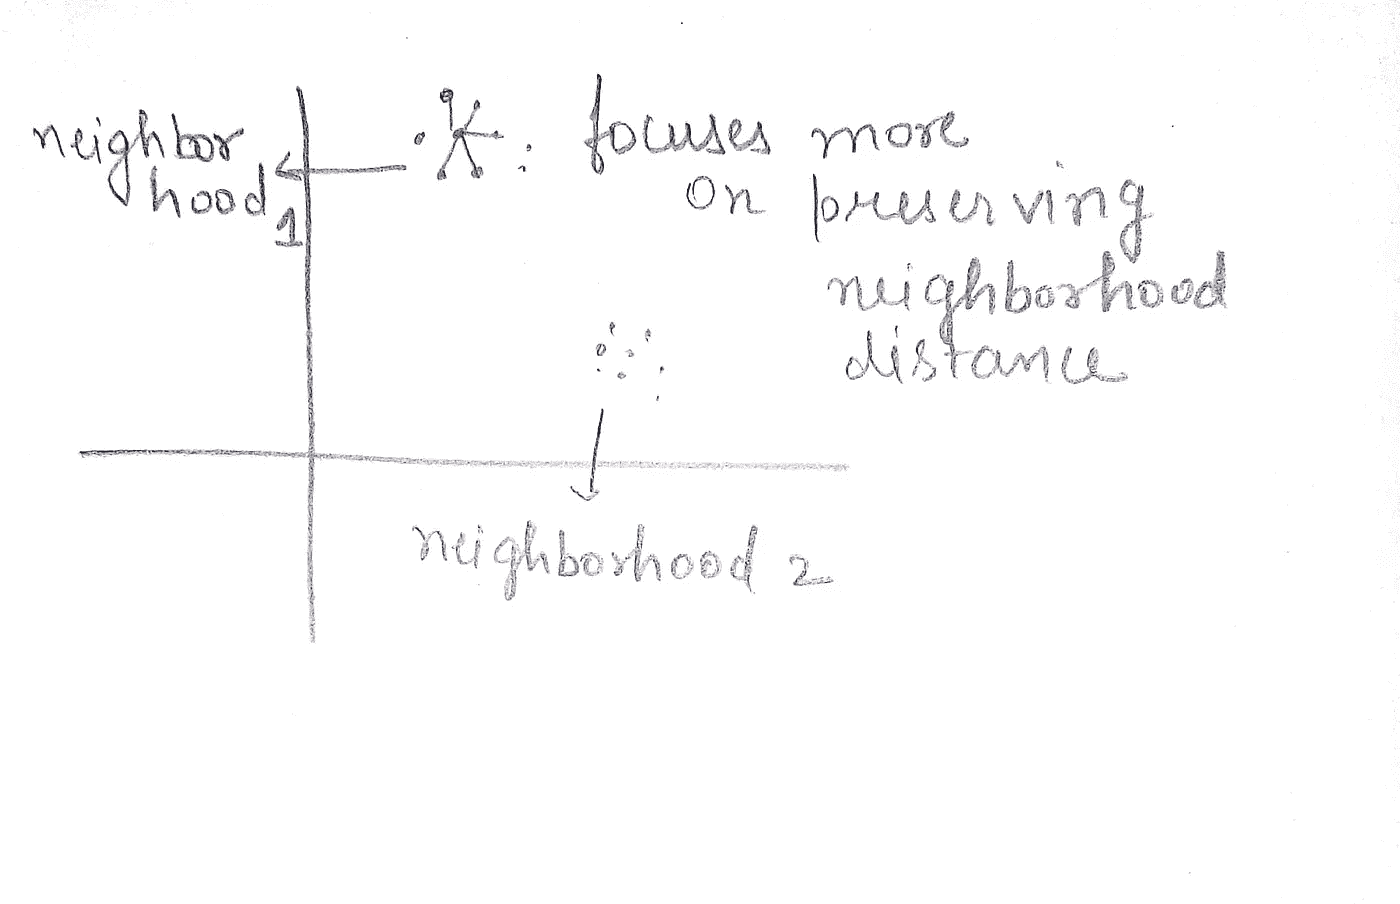 neighbor
hood 1
focuses more
on preserving
neighborhood
distance
neighborhood 2